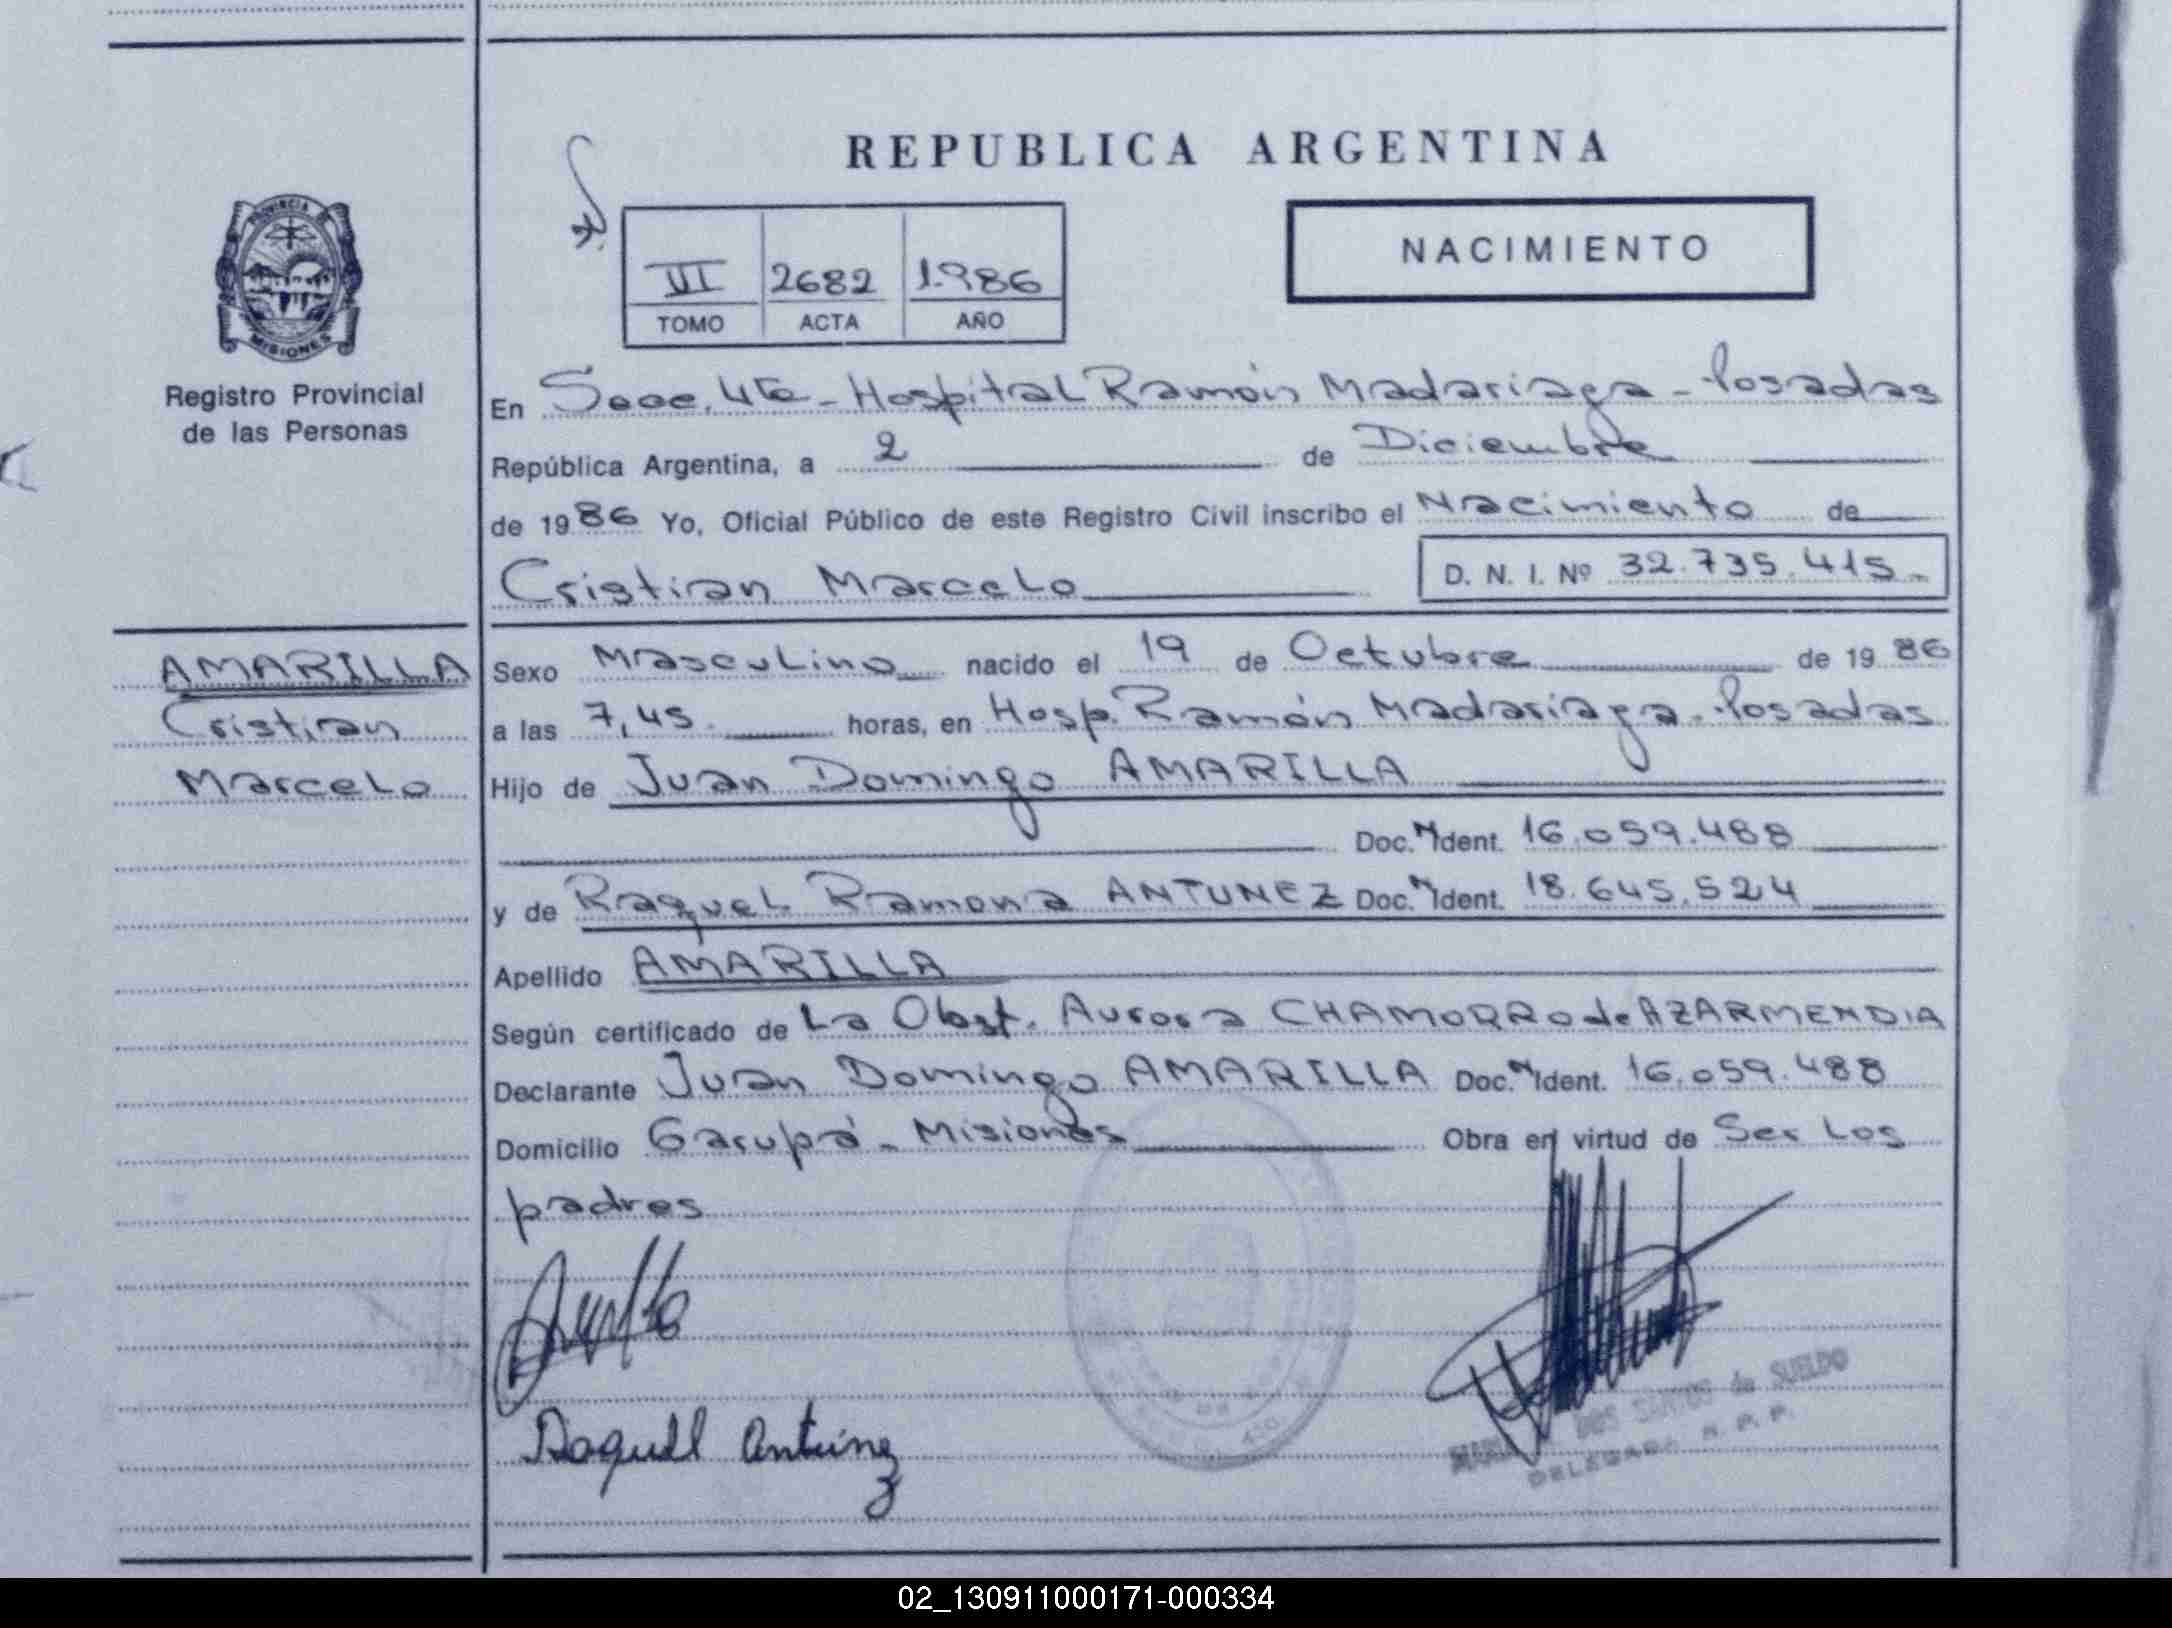 REPUBLICA ARGENTINA
NACIMIENTO
2682 1.986
TOMO ACTA AÑO
PROVINCIA DE
MISIONES
Registro Provincial
de las Personas
En Secc. 4ta - Hospital Ramón Madariaga - Posadas
República Argentina, a 2 de Diciembre
de 1986 Yo, Oficial Público de este Registro Civil inscribo el Nacimiento de
Cristian Marcelo D. N. I. Nº 32.735.415.-
AMARILLA
Cristian
Marcelo
Sexo Masculino nacido el 19 de Octubre de 1986
a las 7,45. horas, en Hosp. Ramón Madariaga - Posadas
Hijo de Juan Domingo AMARILLA
Doc. N Ident. 16.059.488
y de Raquel Ramona ANTUNEZ Doc. N Ident. 18.645.524
Apellido AMARILLA
Según certificado de La Obst. Aurora CHAMORRO de AZARMENDIA
Declarante Juan Domingo AMARILLA Doc. N Ident. 16.059.488
Domicilio Garupá - Misiones Obra en virtud de Ser Los
padres
Raquell Antunez
DOS SANTOS de SUELDO
DELEGADA R. P. P.
02_130911000171-000334